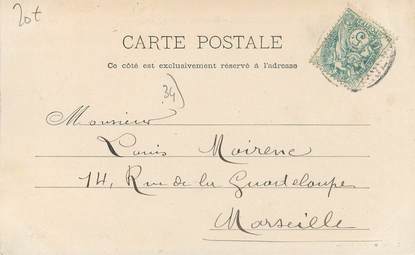 20+
CARTE POSTALE
Ce côté est exclusivement réservé à l'adresse
34)
Monsieur
Louis Moirenc
14, Rue de la Guadeloupe
Marseille